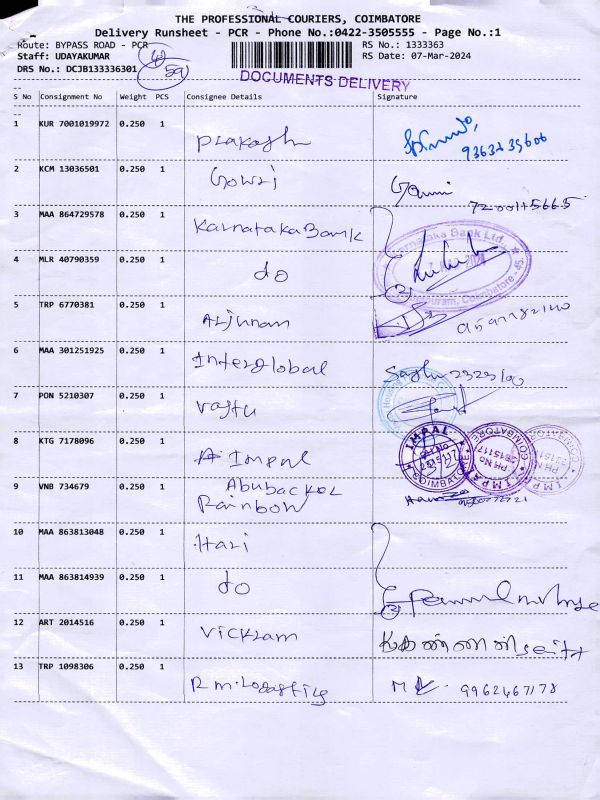 THE PROFESSIONAL COURIERS, COIMBATORE
Delivery Runsheet - PCR - Phone No.:0422-3505555 - Page No.:1
Route: BYPASS ROAD - PCR
RS No.: 1333363
Staff: UDAYAKUMAR
RS Date: 07-Mar-2024
DRS No.: DCJB133336301
DOCUMENTS DELIVERY
S No Consignment No Weight PCS Consignee Details Signature
1 KUR 7001019972 0.250 1 Prakash
2 KCM 13036501 0.250 1 Gowri Gowri
3 MAA 864729578 0.250 1 Karnataka Bank
Karnataka Bank Ltd.
4 MLR 40790359 0.250 1 do
Coimbatore - 45.
5 TRP 6770381 0.250 1 Arjunan
6 MAA 301251925 0.250 1 Interglobal
7 PON 5210307 0.250 1 Vastu
8 KTG 7178096 0.250 1 A Impal
IMPAL PH No 2515117 COIMBATORE
9 VNB 734679 0.250 1 Abubacker
Rainbow
10 MAA 863813048 0.250 1 Hari
11 MAA 863814939 0.250 1 do
12 ART 2014516 0.250 1 Vickram
13 TRP 1098306 0.250 1 R m. Logistics 9962467178